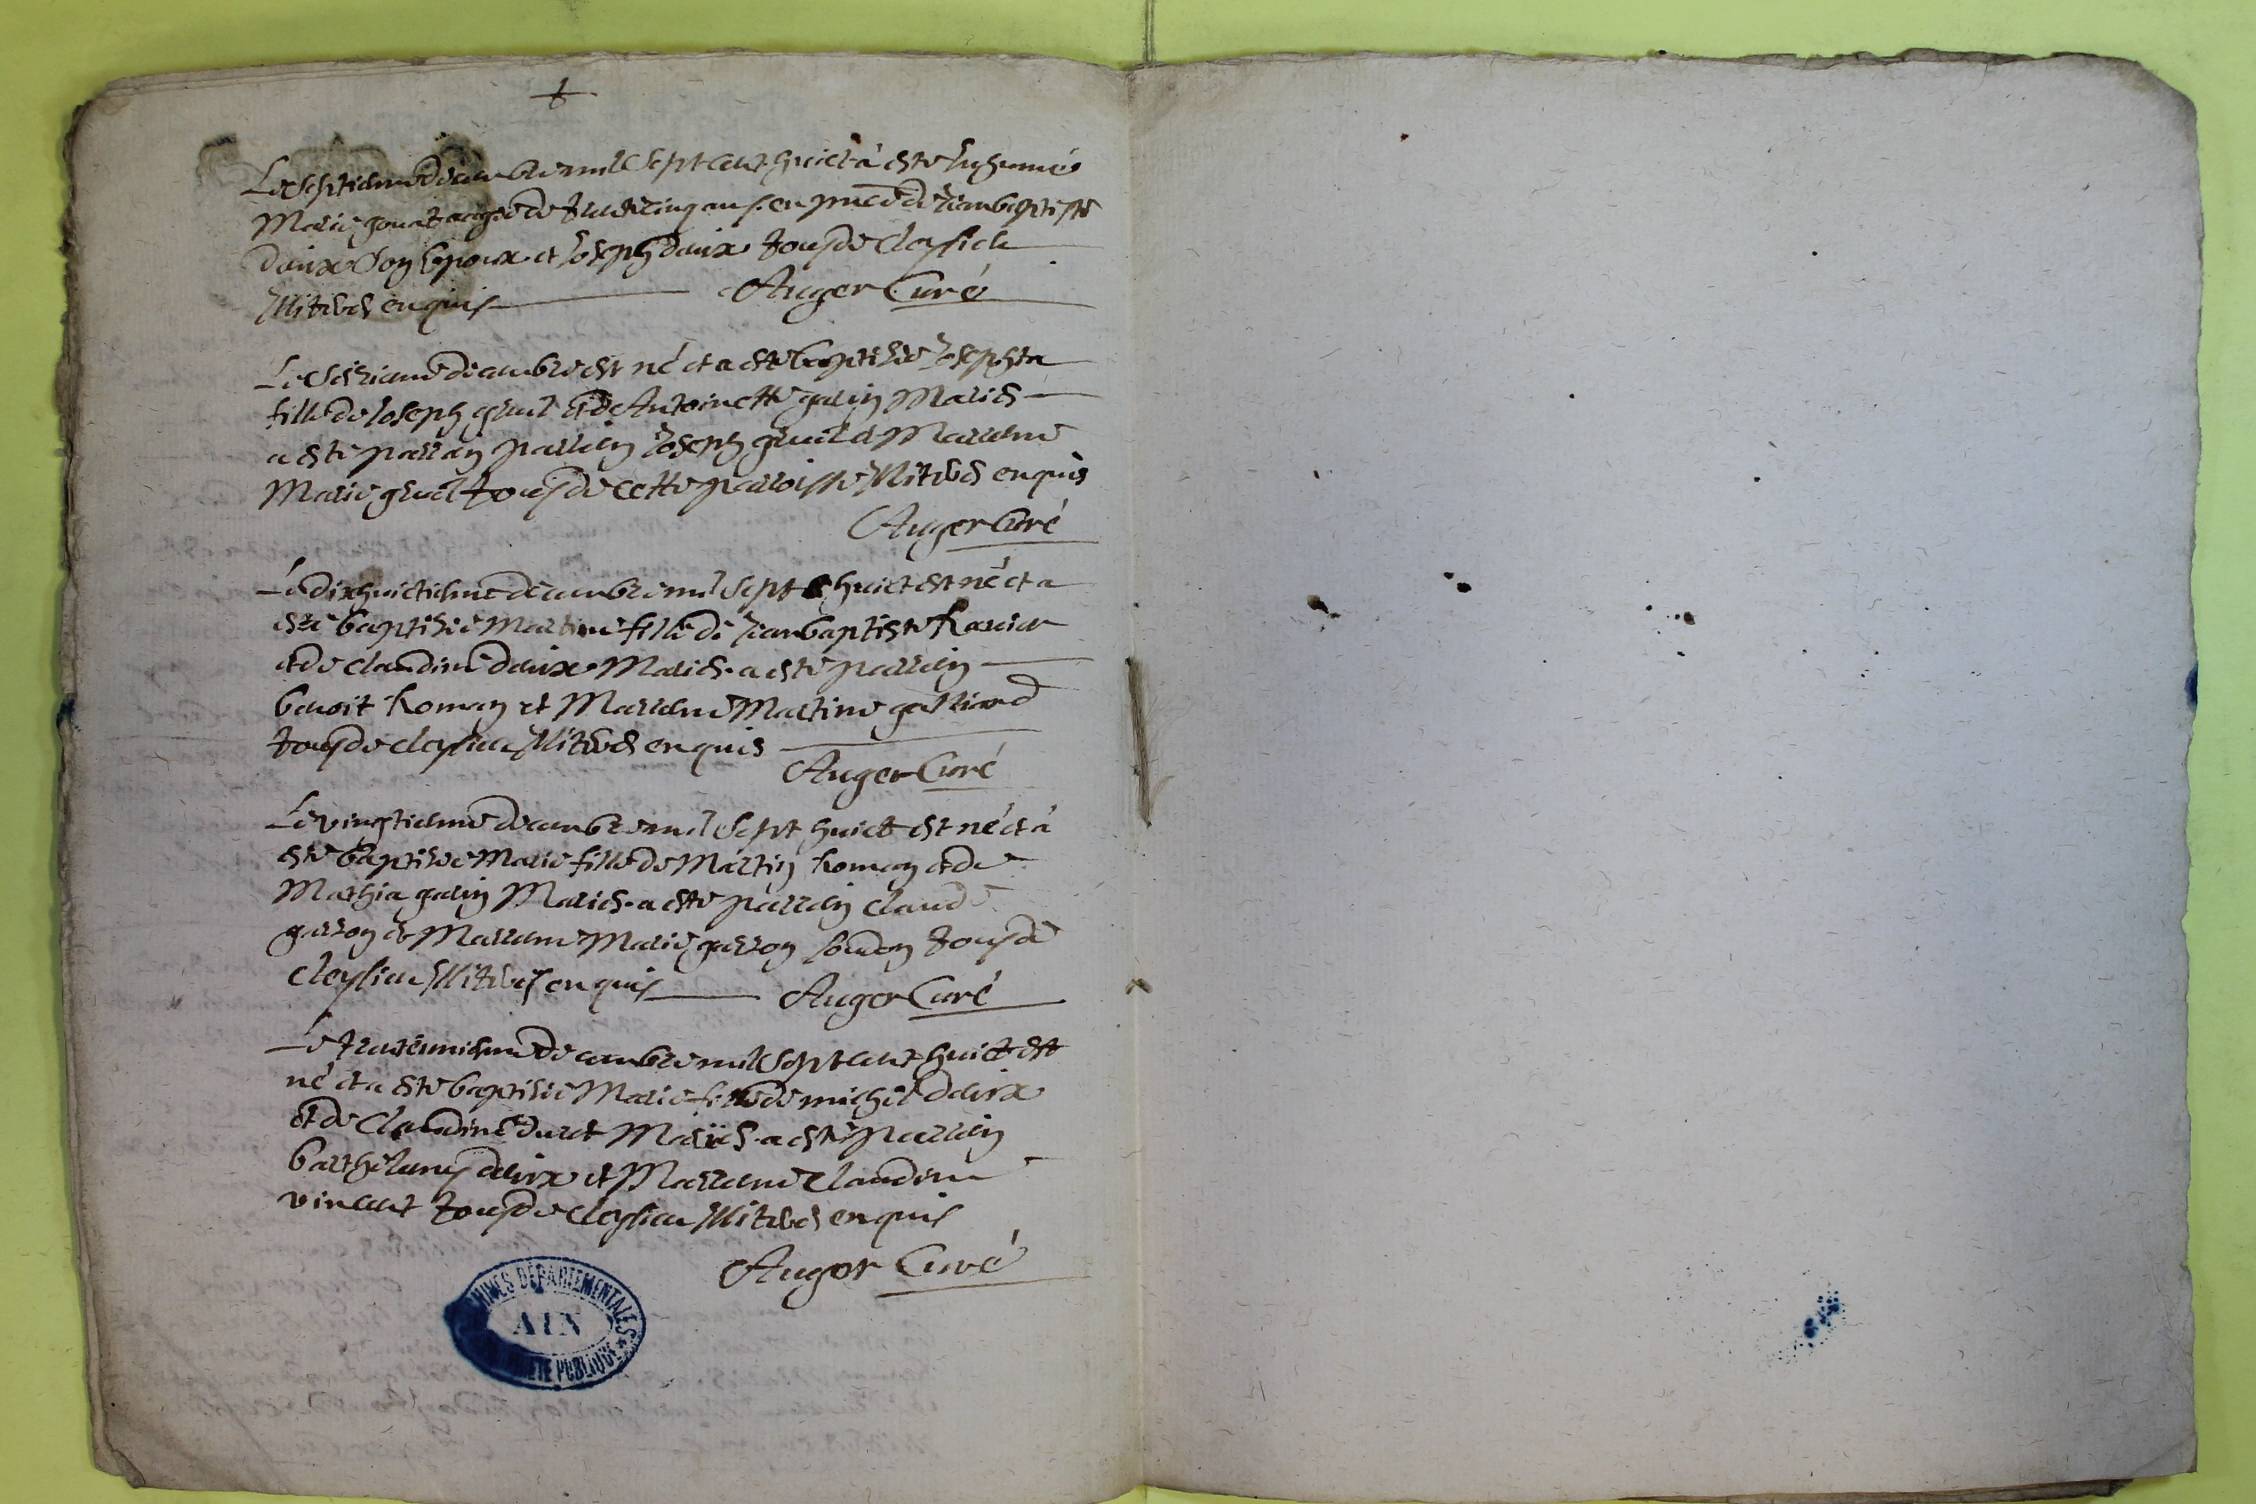 Le septieme decembre mil sept cent huict a esté inhumée
Marie aagée de trente cinq ans en pnce de Jean baptiste
daux son epoux et Joseph daux tous de cleysieu
Illiterés enquis Auger Curé
Le seizieme decembre est né et a esté baptisée Josephta
fille de Joseph gruel et de Antoinette galin Mariés
a esté parrain Joseph gruel et Marrene
Marie gruel tous de cette parroisse Illiterés enquis
Auger Curé
Le dixhuictieme decembre mil sept c huict est né et a
esté baptisée Martine fille de Jean baptiste Ravier
et de claudine daux Mariés a esté parrein
benoit Roman et Marrene Martine galliand
tous de cleysieu Illiterés enquis
Auger Curé
Le vingtieme decembre mil sept huict est né et a
esté baptisée Marie fille de Martin Roman et de
Mathia galin Mariés a esté parrein claude
garron et Marrene Marie garron tous de
cleysieu Illiterés enquis Auger Curé
Le trente unieme decembre mil sept cent huict est
né et a esté baptisée Marie fille de michel daux
et de Claudine duret Mariés a esté parrein
barthelemy daux et Marrene Claudine
vincent tous de cleysieu Illiterés enquis
Auger Curé
ARCHIVES DÉPARTEMENTALES
AIN
PUBLIQUE